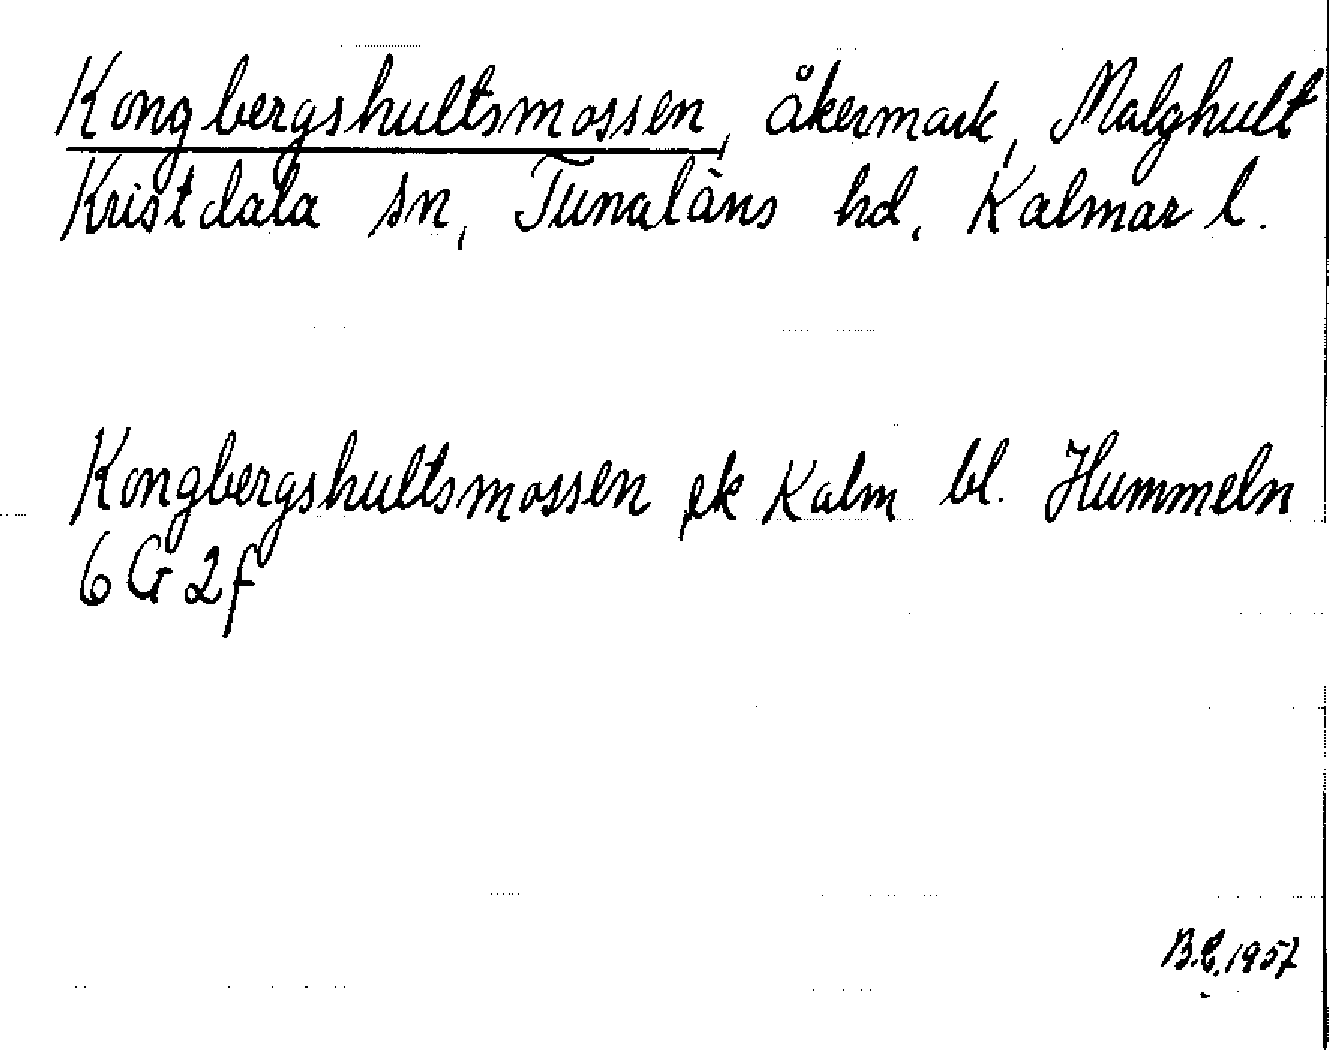 Kongbergshultsmossen, åkermark, Malghult
Kristdala sn, Tunaläns hd, Kalmar l.
Kongbergshultsmossen ek Kalm bl. Hummeln
6 G 2f
B.E. 1957